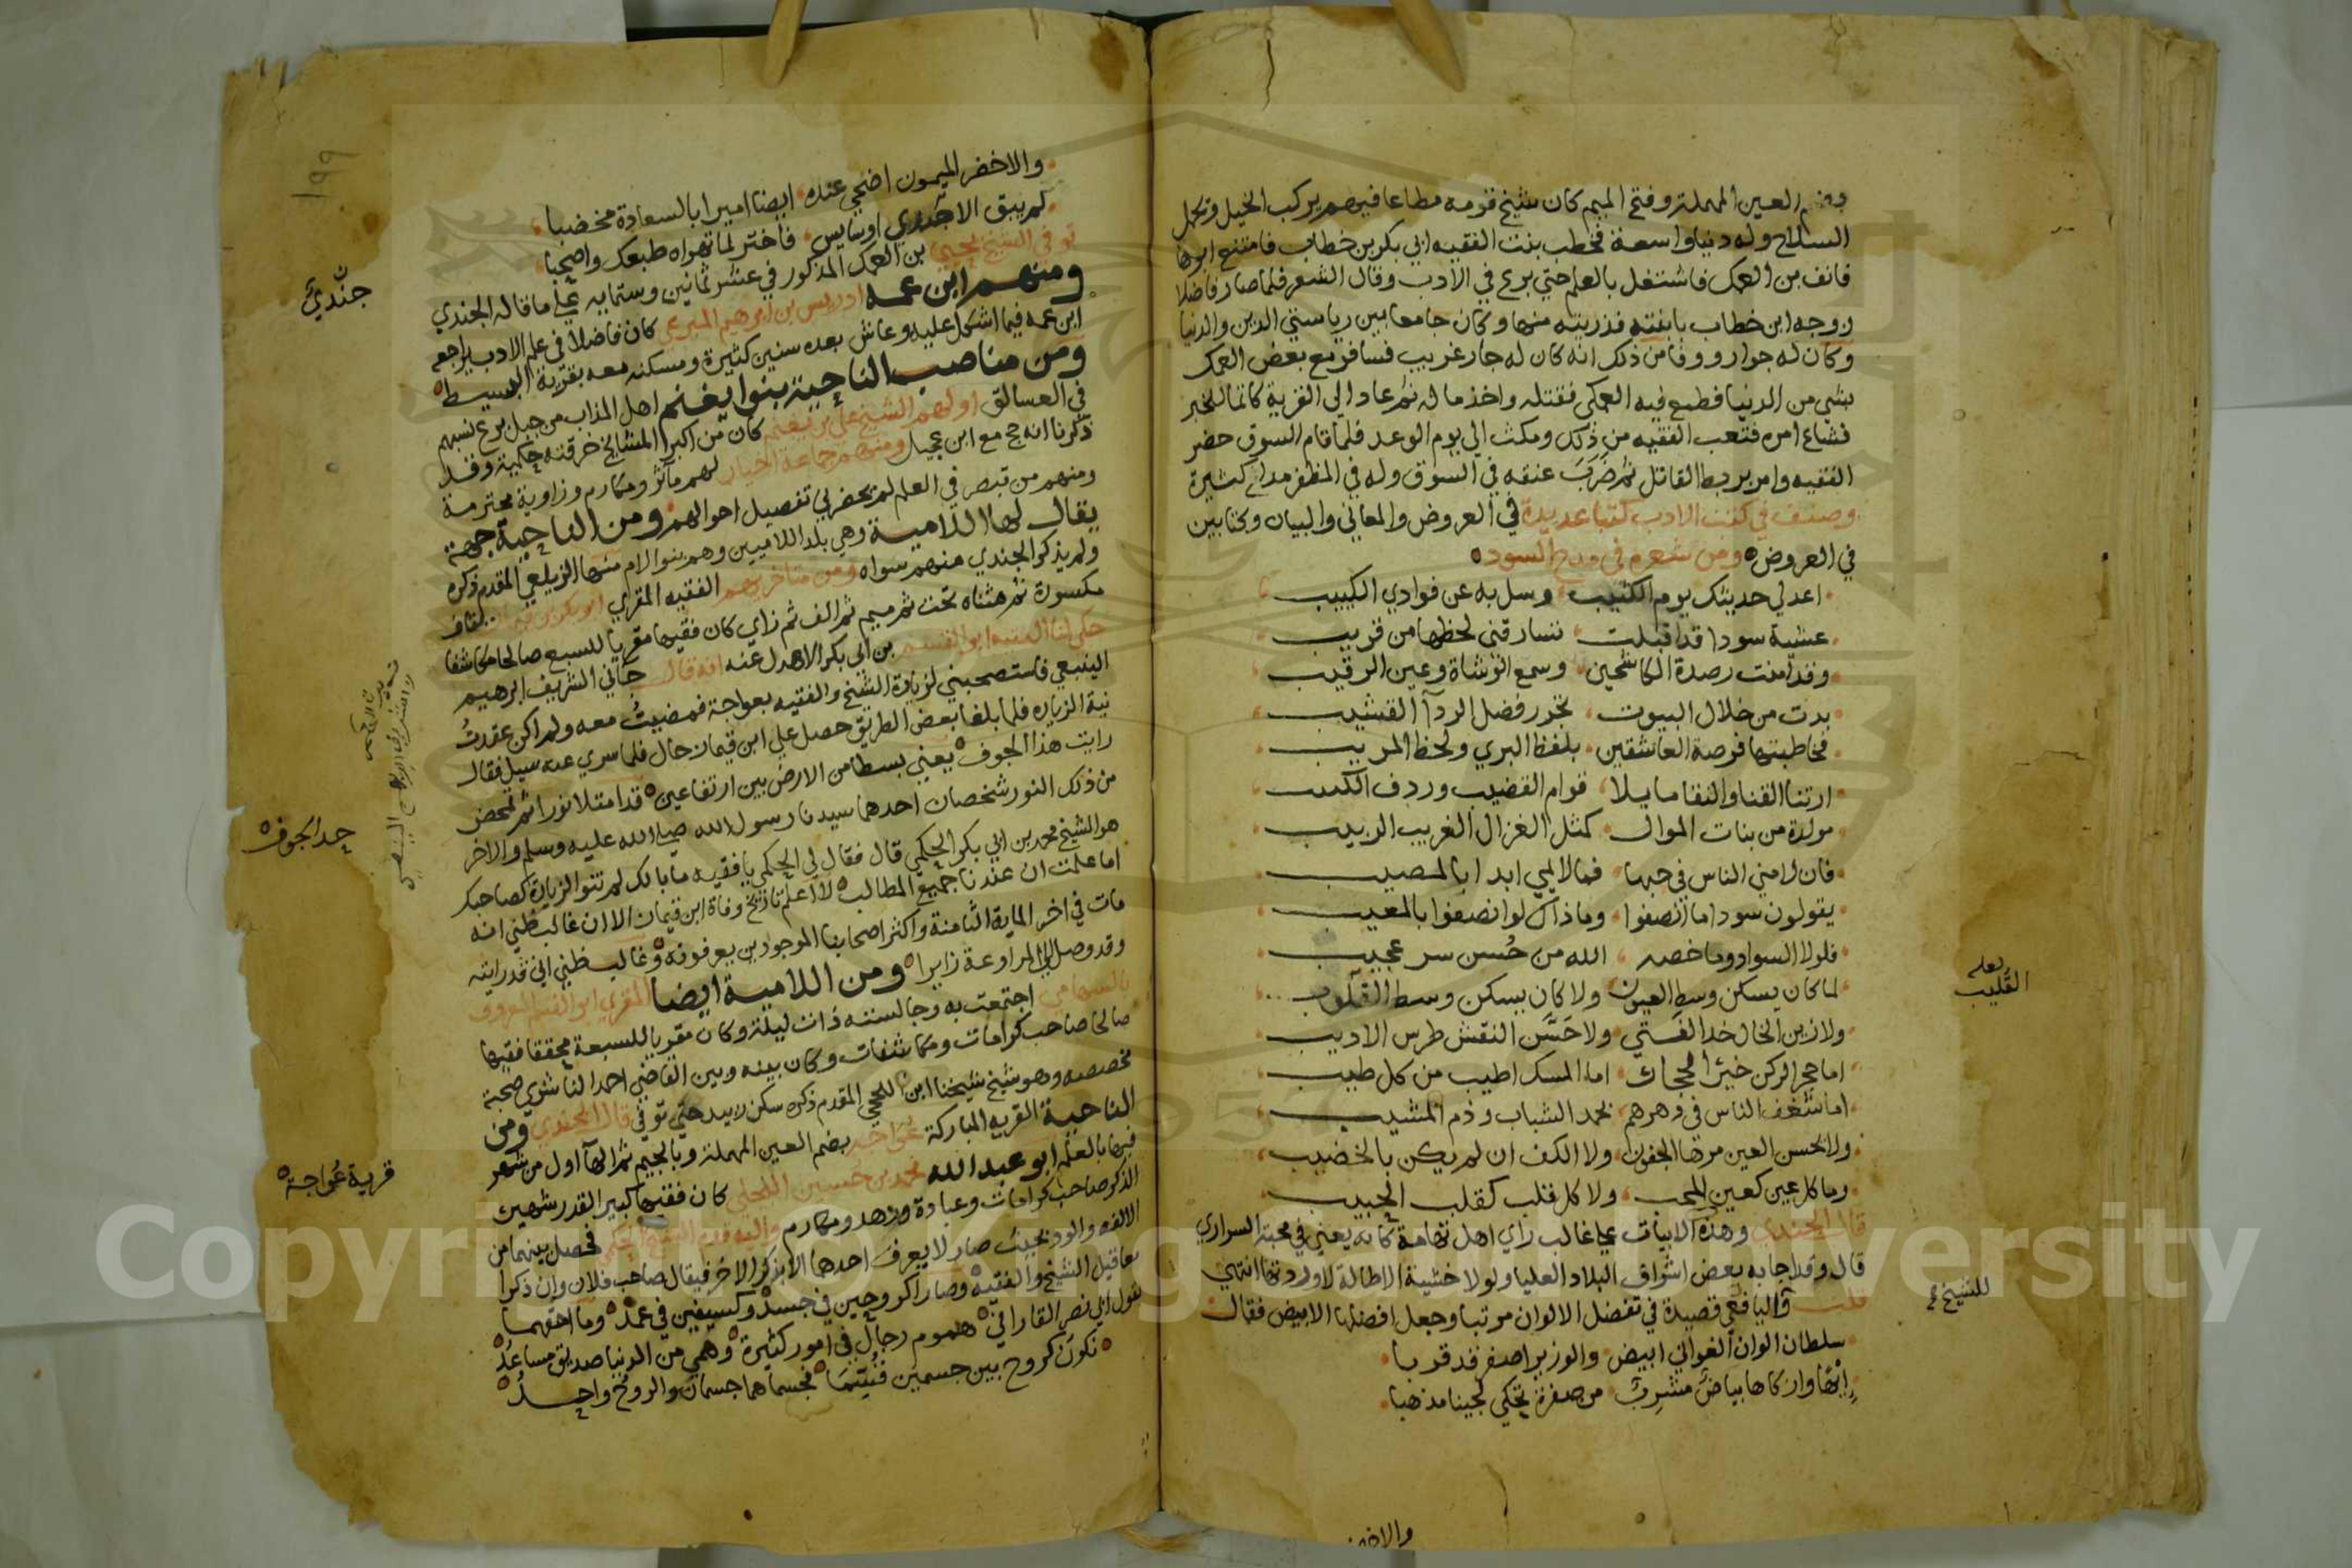 وفتح العين المهملة وفتح الميم كان شيخ قومه مطاعا فيهم يركب الخيل ويحمل
السلاح وله دنيا واسعة فخطب بنت الفقيه ابي بكر بن خطاب فامتنع ابوها
فانف بن العمك فاشتغل بالعلم حتي برع في الأدب وقال الشعر فلما صار فاضلا
زوجه ابن خطاب بابنته فذريته منها وكان جامعا بين رياستي الدين والدنيا
وكان له جوار ووفا من ذلك انه كان له جار غريب فسافر مع بعض العمك
بشي من الدنيا فطمع فيه العمكي فقتله واخذ ماله ثم عاد الي القرية كاتما للخبر
فشاع امره فتعب الفقيه من ذلك ومكث الي يوم الوعد فلما قام السوق حضر
الفقيه وامر بربط القاتل ثم ضرب عنقه في السوق وله في المظفر مدائح كثيرة
وصنف في كتب الادب كتبا عديدة في العروض والمعاني والبيان وكتابين
في العروض ومن شعره في مدح السود
اعد لي حديثك يوم الكثيب وسل به عن فوادي الكييب
عشية سودا قد اقبلت تسارقني لحظها من قريب
وقد امنت رصدة الكاشحين وسمع الوشاة وعين الرقيب
بدت من خلال البيوت تجرر فضل الردآ القشيب
فخاطبتها فرصة العاشقين بلفظ البري ولحظ المريب
ارتنا القنا والنقا مايلا قوام القضيب وردف الكثيب
مولدة من بنات الموال كمثل الغزال الغريب الربيب
فان لامني الناس في حبها فما لايمي ابدا بالمصيب
يقولون سودا ما انصفوا وما ذاك لو انصفوا بالمعيب
فلولا السواد وما خصه الله من حُسن سر عجيب
لما كان يسكن وسط العيون ولا كان يسكن وسط القلوب
ولا زين الخال خد الفتي ولا حَسَّن النقش طرس الاديب
اما حجر الركن خير الحجار اما المسك اطيب من كل طيب
اما شغف الناس في دهرهم بحمد الشباب وذم المشيب
ولا تحسن العين مرها الجفون ولا الكف ان لم يكن بالخضيب
وما كل عين كعين المحب ولا كل قلب كقلب الحبيب
قال الجندي وهذه الابيات علي غالب راي اهل تهامة كانه يعني في محبة السراري
قال وقد اجابه بعض اشراف البلاد العليا ولولا خشية الاطالة لاوردتها انتهي
قلت واليافعي قصيدة في تفضل الالوان مرتبا وجعل افضلها الابيض فقال
سلطان الوان الغواني ابيض والوزير اصفر قد قربا
ابهّا وان كاها بياض مشرب من صفرة تحكي لجينا مذهبا
والاخضر
بعله
القليب
للشيخ
١٩٩
والاخضر الميمون اضحي عنده ايضا اميرا بالسعادة مخضبا
لم يبق الا جندي او سايس فاختر لما تهواه طبعك واصحبا
توفي الشيخ يحيي بن العمك المذكور في عشر ثمانين وستمايه علي ما قاله الجندي
ومنهم ابن عمه ادريس بن ابرهيم المبرعي كان فاضلا في علم الادب يراجعه
ابن عمه فيما اشكل عليه وعاش بعده سنين كثيرة ومسكنه معه بقرية البسيط
ومن مناصب الناحية بنوا يغنم اهل المذاب من جبل برع نسبهم
في العسالق اولهم الشيخ علي بن يغنم كان من اكبر المشايخ خرقته حكمية وقد
ذكرنا انه حج مع ابن عجيل ومنهم جماعة اخيار لهم مآثر ومكارم وزاوية محترمة
ومنهم من تبصر في العلم لم يحضرني تفصيل احوالهم ومن الناحية جهة
يقال لها اللامية وهي بلد اللاميين وهم بنوا لام منها الزيلعي المقدم ذكره
ولم يذكر الجندي منهم سواه ومن متاخريهم الفقيه المقري ابو بكر بن قيماز بقاف
مكسورة ثم مثناه تحت ثم ميم ثم الف ثم زاي كان فقيها مقريا للسبع صالحا مكاشفا
حكي لنا الفقيه ابو القسم بن ابي بكر الاهدل عنه انه قال جاني الشريف ابرهيم
الينبعي فاستصحبني لزيارة الشيخ والفقيه بعواجة فمضيتُ معه ولم اكن عقدتُ
نية الزياره فلما بلغنا بعض الطريق حصل علي ابن قيماز حال فلما سري عنه سيل فقال
رايت هذا الجوف يعني بسطا من الارض بين ارتفاعين قد امتلا نورا ثم تمحض
من ذلك النور شخصان احدهما سيدنا رسول الله صلي الله عليه وسلم والاخر
هو الشيخ محمد بن ابي بكر الحكمي قال فقال لي الحكمي يا فقيه ما بالك لم تنو الزيارة كصاحبك
اما علمت ان عندنا جميع المطالب لا اعلم تاريخ وفاة ابن قيماز الا ان غالب ظني انه
مات في اخر الماية الثامنة واكثر اصحابنا الموجودين يعرفونه وغالب ظني اني قد رايته
وقد وصل الي المراوعة زايرا ومن اللامية ايضا المقري ابو القسم المعروف
بالسهامي اجتمعت به وجالسته ذات ليلة وكان مقريا للسبعة محققا فقيها
صالحا صاحب كرامات ومكاشفات وكان بينه وبين القاضي احمد الناشري صحبة
مخصصه وهو شيخ شيخنا ابن اللحجي المقدم ذكره سكن زبيد حتي توفي قال الجندي ومن
الناحية القريه المباركة عواجه بضم العين المهملة وبالجيم ثم الهآ اول من شهر
فيها بالعلم ابو عبد الله محمد بن حسين البجلي كان فقيها كبير القدر شهير
الذكر صاحب كرامات وعبادة وزهد ومكارم واليه قدم الشيخ الحكمي فحصل بينهما من
الالفه والود بحيث صار لا يعرف احدهما الا بذكر الاخر فيقال صاحب فلان وان ذكرا
معا قيل الشيخ والفقيه وصارا كروحين في جسد وكسيفين في غمد وما احقهما
بقول ابي نصر الفارابي هموم رجال في امور كثيرة وهمي من الدنيا صديق مساعدُ
نكون كروح بين جسمين قُسّمَا فجسماهما جسمان والروح واحدُ
جندي
حد الجوف
قرية عُواجة